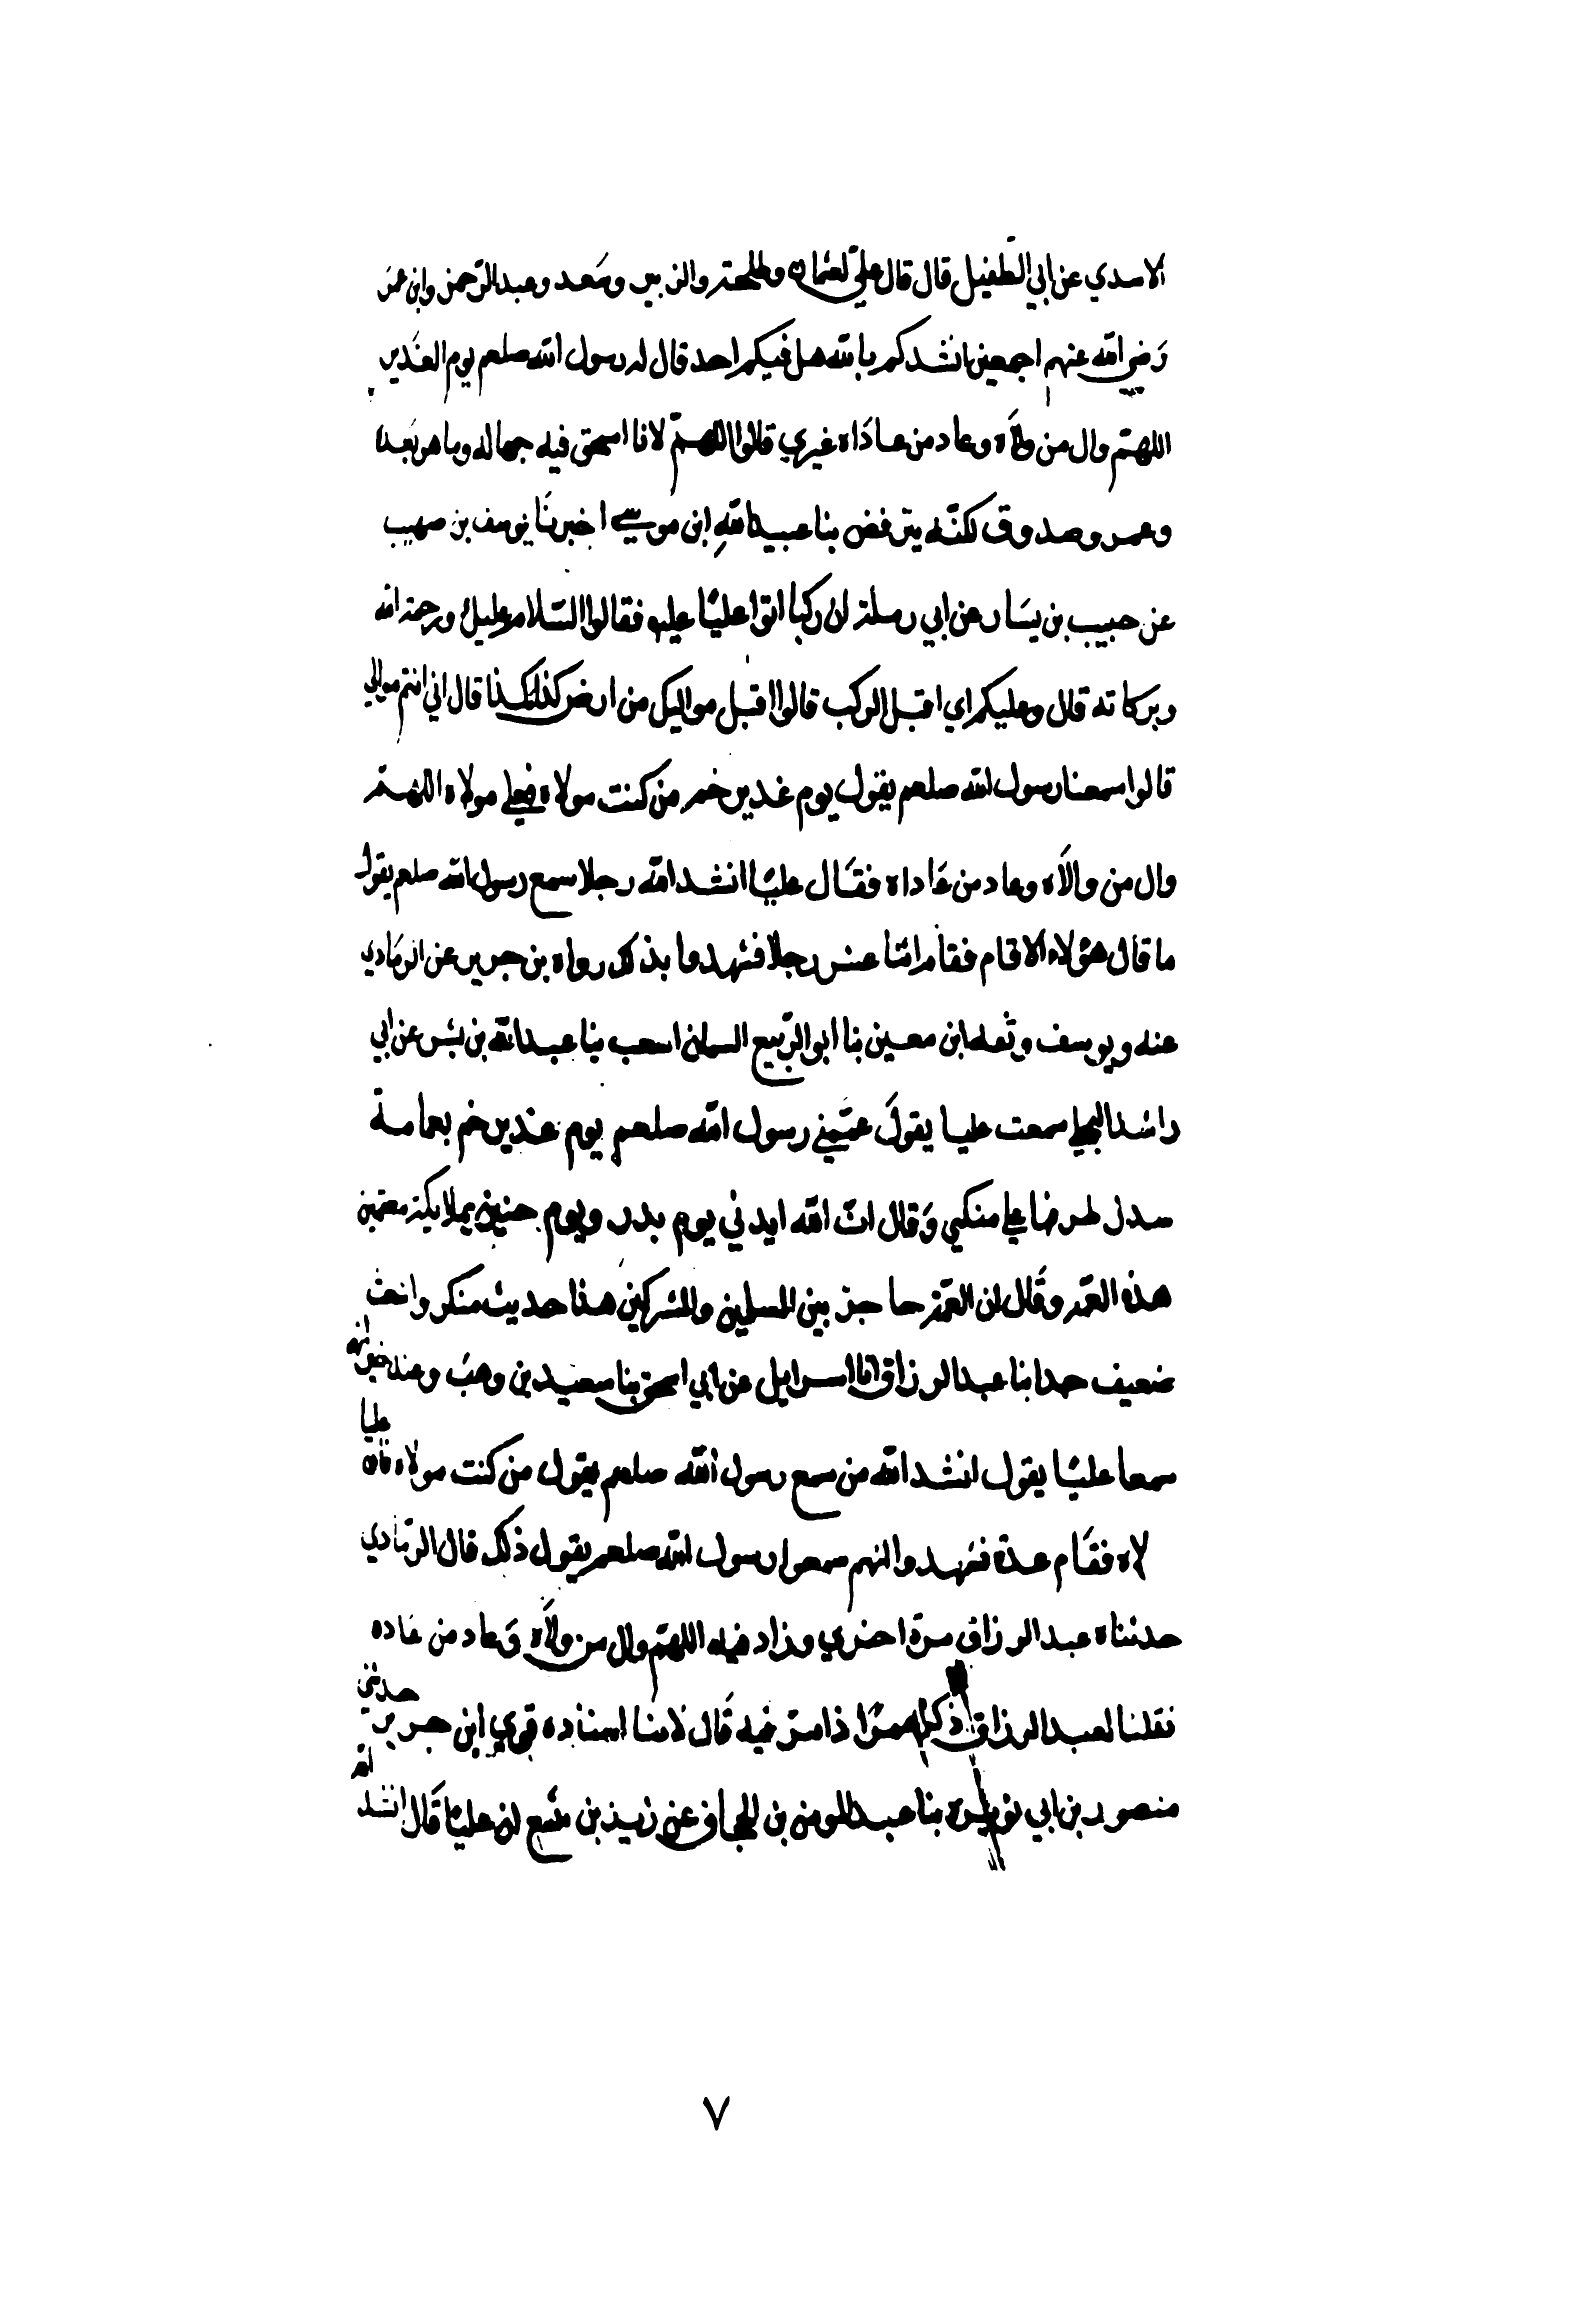 الاسدي عن ابي الطفيل قال قال علي لعثمان وطلحة والزبير وسعد وعبد الرحمن وابن عمر
رضي الله عنهم اجمعين انشدكم بالله هل فيكم احد قال له رسول الله صلعم يوم الغدير
اللهم وال من والاه وعاد من عاداه غيري قالوا اللهم لا انا اسحق فيه جهاله وما هو بعد
وعمر وصدوق لكنه يترفض بنا عبيد الله ابن موسي اخبرنا يوسف بن صهيب
عن حبيب بن يسار عن ابي رملة ان ركبا اتوا عليا عليه فقالوا السلام عليك ورحمة الله
وبركاته قال وعليكم اي اقبل الركب قالوا اقبل مواليك من ارض كذا وكذا قال اني انتم موالي
قالوا سمعنا رسول الله صلعم يقول يوم غدير خم من كنت مولاه فعلي مولاه اللهم
وال من والاه وعاد من عاداه فقال عليا انشد الله رجلا سمع رسول الله صلعم يقول
ما قال هؤلاء الا قام فقام اثنا عشر رجلا فشهدوا بذلك رواه بن جرير عن الرمادي
عنه ويوسف وثقه ابن معين بنا ابو الربيع السمان اسعب بنا عبد الله بن بشر عن ابي
راشد سمعت عليا يقول عممني رسول الله صلعم يوم غدير خم بعمامة
سدل طرفها علي منكبي وقال ان الله ايدني يوم بدر ويوم حنين بملايكة معتمين
هذه العمة وقال ان العمة حاجز بين المسلمين والمشركين هذا حديث منكر واشعث
ضعيف حدا بنا عبد الرزاق انا اسرايل عن ابي اسحق بنا سعيد بن وهب وعبد خير انهما
سمعا عليا يقول انشد الله من سمع رسول الله صلعم يقول من كنت مولاه فان عليا
لاه فقام عدة فشهدوا انهم سمعوا رسول الله صلعم يقول ذلك قال الرمادي
حدثناه عبد الرزاق مرة اخري وزاد فيه اللهم وال من والاه وعاد من عاده
فقلنا لعبد الرزاق فيه قال لاهنا اسناده قوي ابن جرير حدثني
منصور بن ابي نويرة بنا عبد المومن بن الجحاف عن زيد بن يثيع ان عليا قال انشد الله
٧